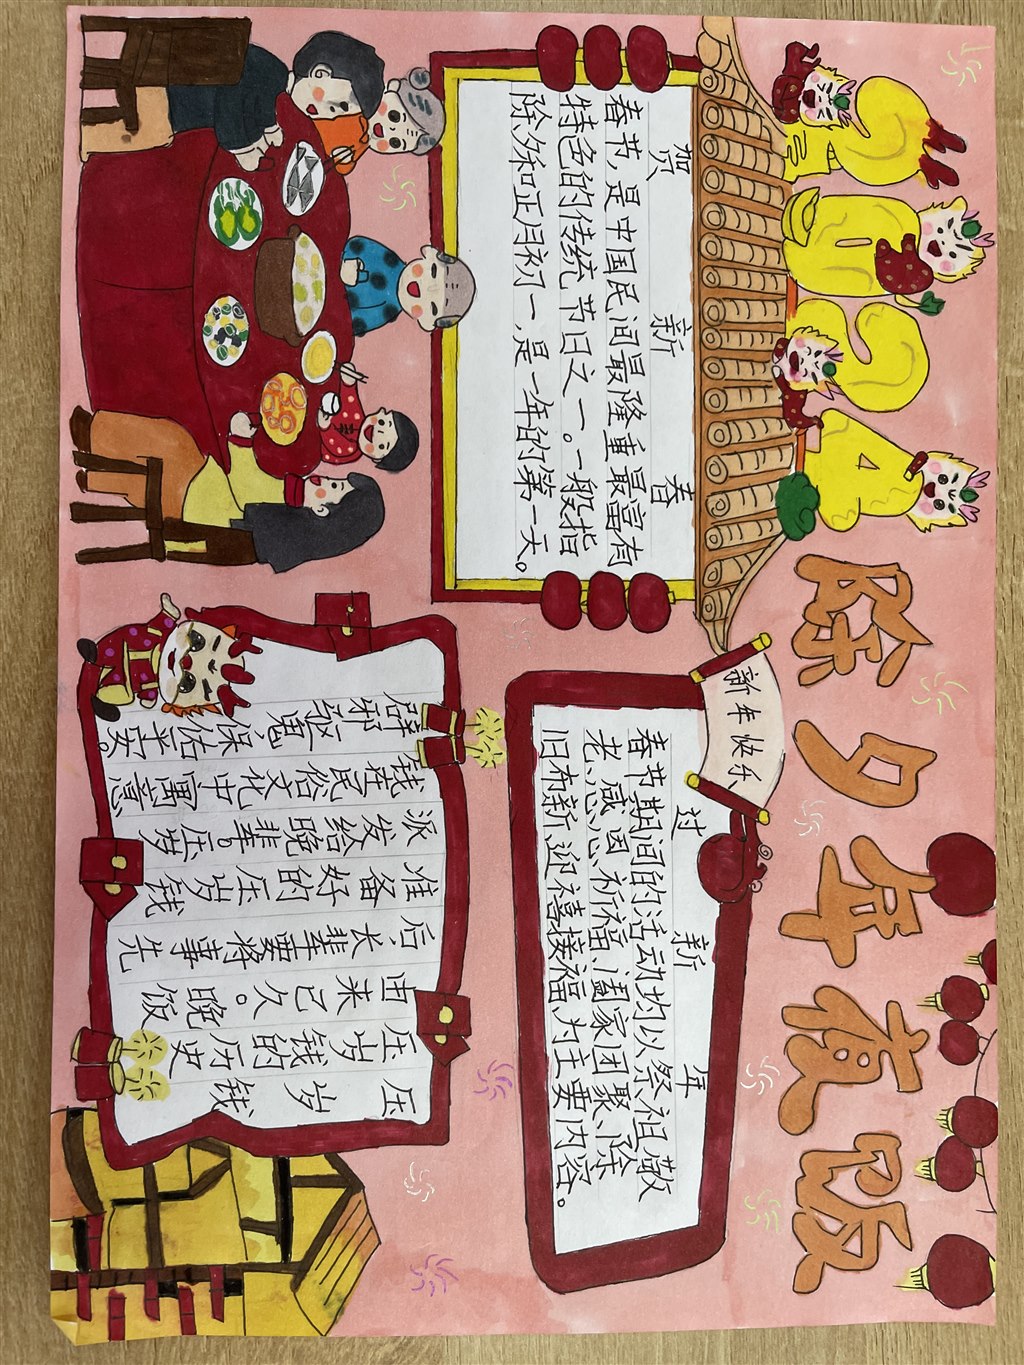 2024
除夕年夜饭
贺新春
春节，是中国民间最隆重最富有
特色的传统节日之一。一般指
除夕和正月初一，是一年的第一天。
新年快乐
过新年
春节期间的活动均以祭祖、敬
老、感恩、祈福、阖家团聚、除
旧布新、迎禧接福为主要内容。
压岁钱
压岁钱的历史
由来已久。晚饭
后长辈要将事先
准备好的压岁钱
派发给晚辈。压岁
钱在民俗文化中寓意
辟邪驱鬼，保佑平安。